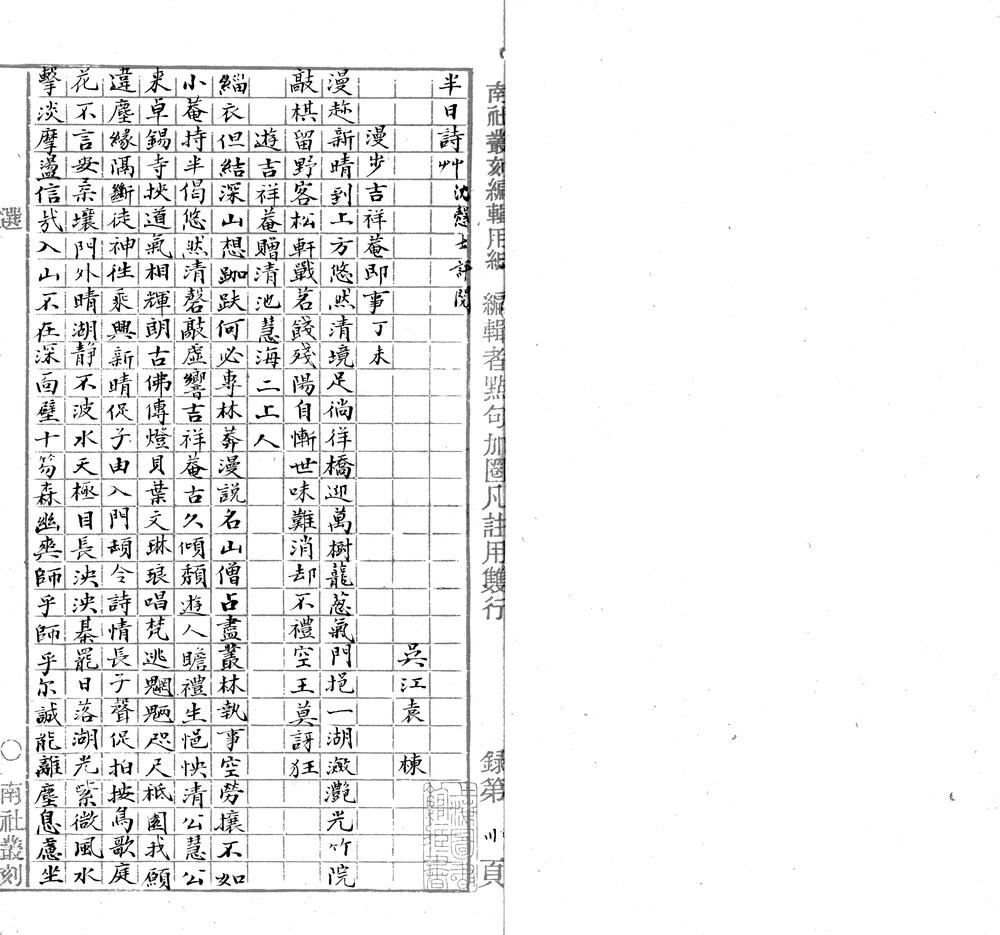 南社叢刻編輯用紙 編輯者點句加圈凡註用雙行 錄第 川 頁
半日詩艸 沈馨士評閱
吳江袁 棟
漫步吉祥菴即事丁未
漫趂新晴到上方悠然清境足徜徉橋迎萬樹蘢蔥氣門挹一湖瀲灔光竹院
敲棋留野客松軒戰茗餞殘陽自慚世味難消却不禮空王莫訝狂
遊吉祥菴贈清池慧海二上人
緇衣但結深山想跏趺何必專林莽漫説名山僧占盡叢林執事空勞攘不如
小菴持半偈悠然清磬敲虛響吉祥菴古久傾頽遊人瞻禮生悒怏清公慧公
来卓錫寺挾道氣相輝朗古佛傳燈貝葉文琳琅唱梵逃魍魎咫尺祗園我願
違塵緣隔斷徒神徃乘興新晴促子由入門頡令詩情長子聲促拍挾鳥歌庭
花不言安桑壤門外晴湖靜不波水天極目長泱泱棊罷日落湖光紫微風水
擊淡摩盪信㢤入山不在深面壁十笏森幽爽師乎師乎尔誠能離塵息慮坐
選 〇 南社叢刻